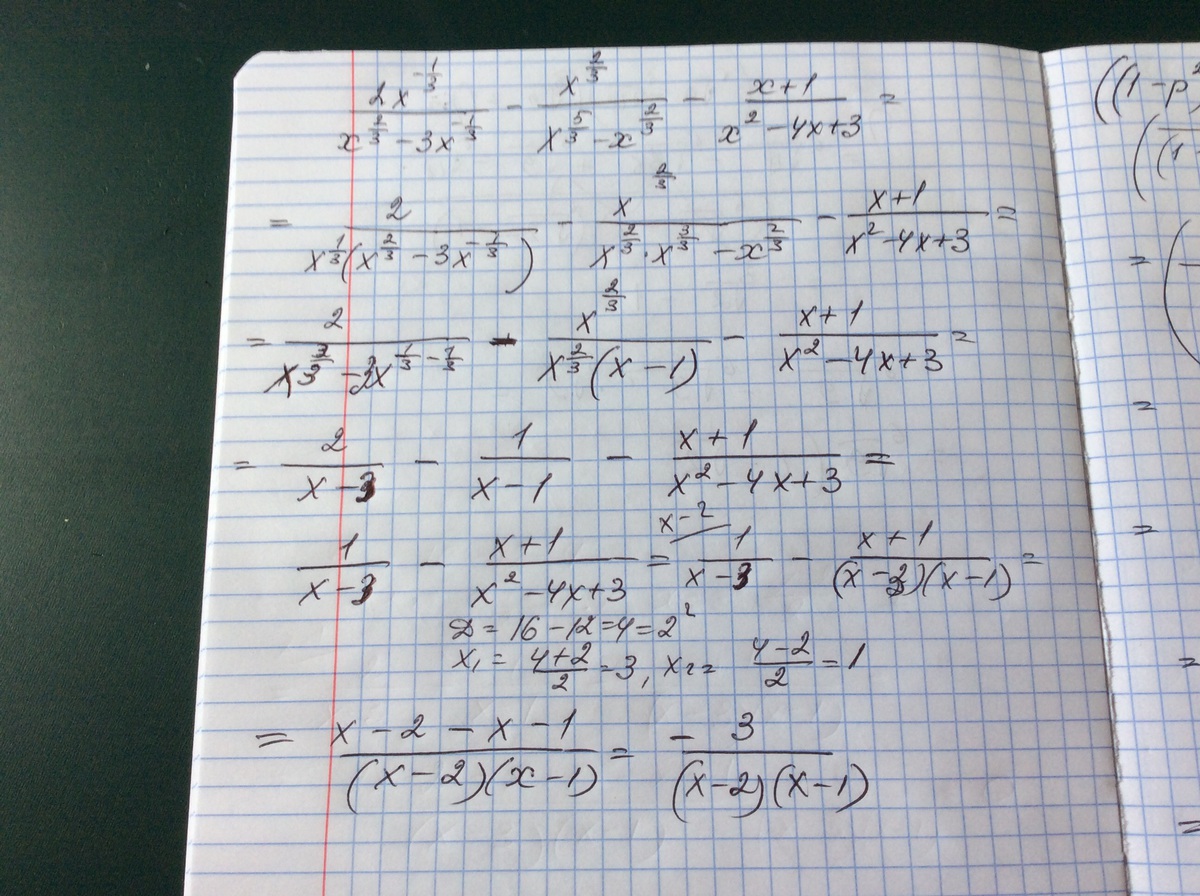 2x^{-1/3} / (x^{2/3} - 3x^{-1/3}) - x^{2/3} / (x^{5/3} - x^{2/3}) - (x+1) / (x^2 - 4x+3) =
= 2 / (x^{1/3}(x^{2/3} - 3x^{-1/3})) - x^{2/3} / (x^{2/3} · x^{3/3} - x^{2/3}) - (x+1) / (x^2 - 4x+3) =
= 2 / () - x^{2/3} / (x^{2/3}(x - 1)) - (x+1) / (x^2 - 4x+3) =
= 2 / (x - 3) - 1 / (x - 1) - (x+1) / (x^2 - 4x+3) =
x-2
1 / (x - 3) - (x+1) / (x^2 - 4x+3) = 1 / (x - 3) - (x+1) / ((x - 3)(x - 1)) =
D = 16 - 12 = 4 = 2^2
x_1 = (4+2) / 2 = 3, x_2 = (4-2) / 2 = 1
= (x - 2 - x - 1) / ((x - 2)(x - 1)) = - 3 / ((x-2)(x-1))
((1-p^2
((1
= (
=
=
=
=